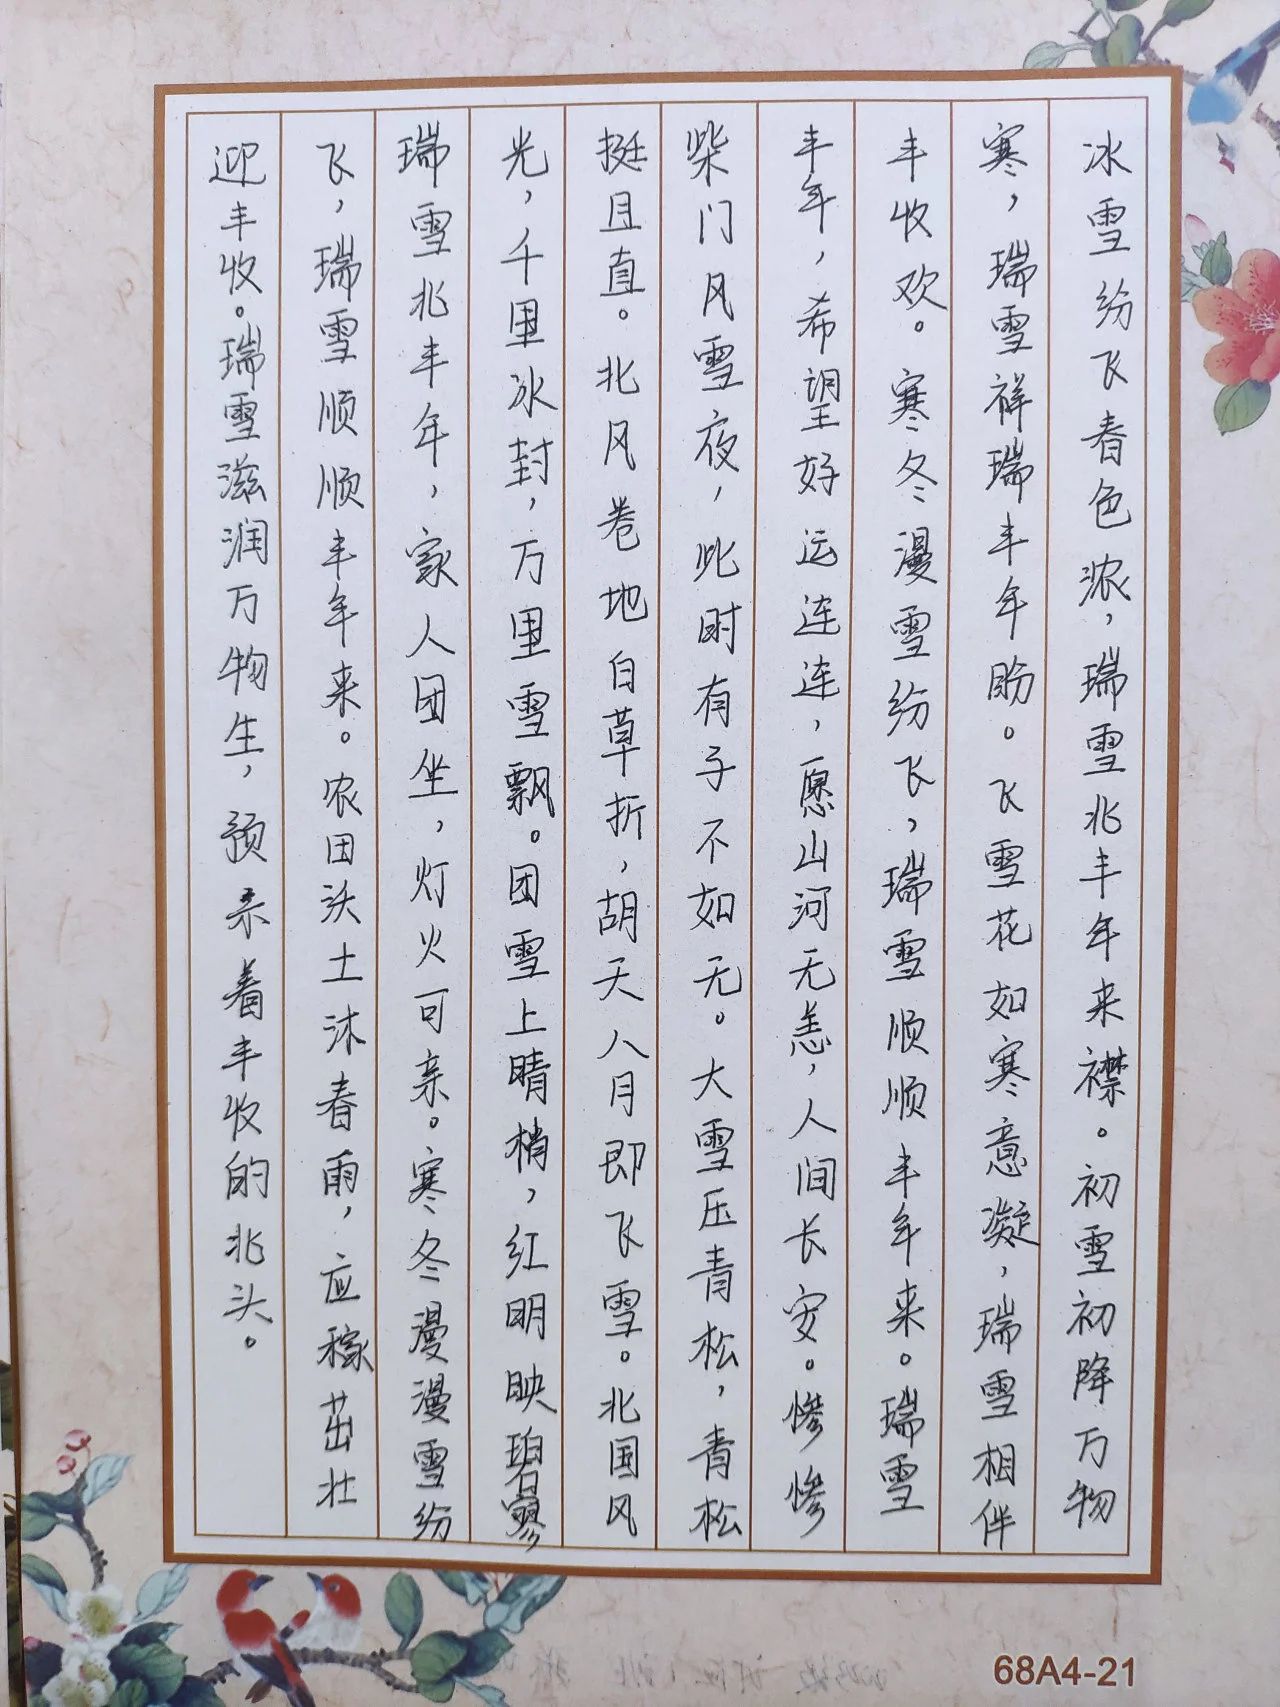 冰雪纷飞春色浓，瑞雪兆丰年来襟。初雪初降万物
寒，瑞雪祥瑞丰年盼。飞雪花如寒意凝，瑞雪相伴
丰收欢。寒冬漫雪纷飞，瑞雪顺顺丰年来。瑞雪
丰年，希望好运连连，愿山河无恙，人间长安。惨惨
柴门风雪夜，此时有子不如无。大雪压青松，青松
挺且直。北风卷地白草折，胡天八月即飞雪。北国风
光，千里冰封，万里雪飘。团雪上晴梢，红明映碧寥
瑞雪兆丰年，家人团坐，灯火可亲。寒冬漫漫雪纷
飞，瑞雪顺顺丰年来。农田沃土沐春雨，应稼茁壮
迎丰收。瑞雪滋润万物生，预示着丰收的兆头。
68A4-21